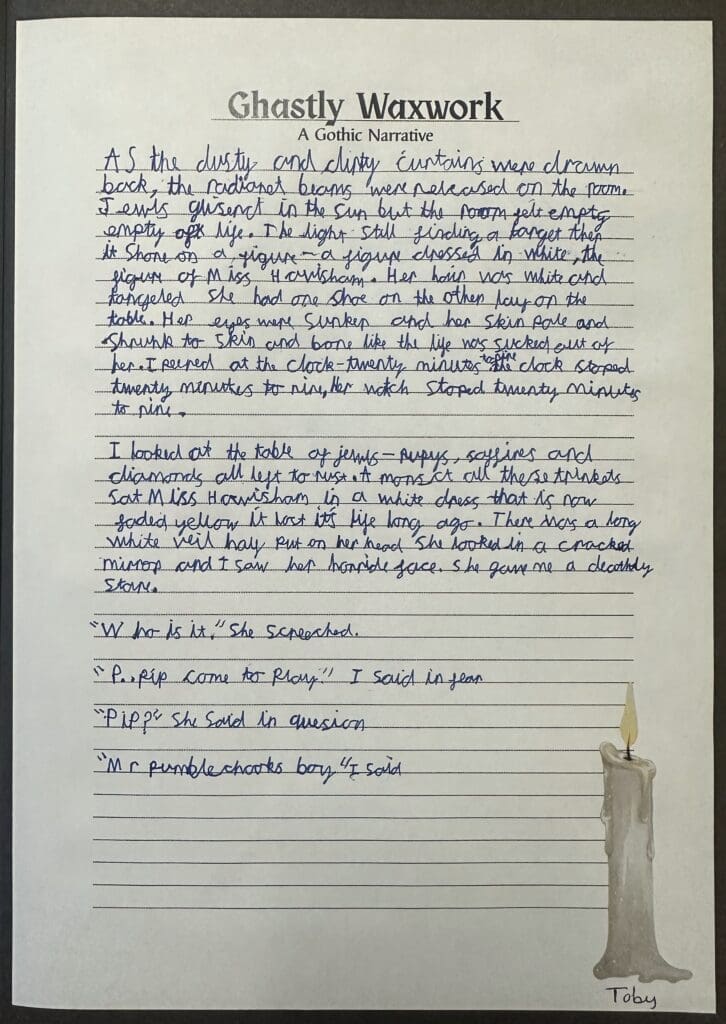 Ghastly Waxwork
A Gothic Narrative
As the dusty and dirty curtains were drawn
back, the radianet beams were released on the room.
Jewls glisenct in the sun but the room felt empty
empty of life. The light still finding a target then
it shone on a figure – a figure dressed in white, the
figure of Miss Havisham. Her hair was white and
tangeled she had one shoe on the other lay on the
table. Her eyes were sunken and her skin pale and
shrunk to skin and bone like the life was sucked out of
her. I peered at the clock-twenty minutes to nine the clock stoped
twenty minutes to nine, Her watch stoped twenty minutes
to nine.
I looked at the table of jewls – rupys, saffires and
diamonds all left to rust. Amonsct all these trinkets
sat Miss Havisham in a white dress that is now
faded yellow it lost it's life long ago. There was a long
white veil half put on her head she looked in a cracked
mirror and I saw her horride face. She gave me a deathly
stare.
"Who is it." She screeched.
"P..Pip come to play." I said in fear
"Pip?" she said in quesion
"Mr pumblechooks boy" I said
Toby